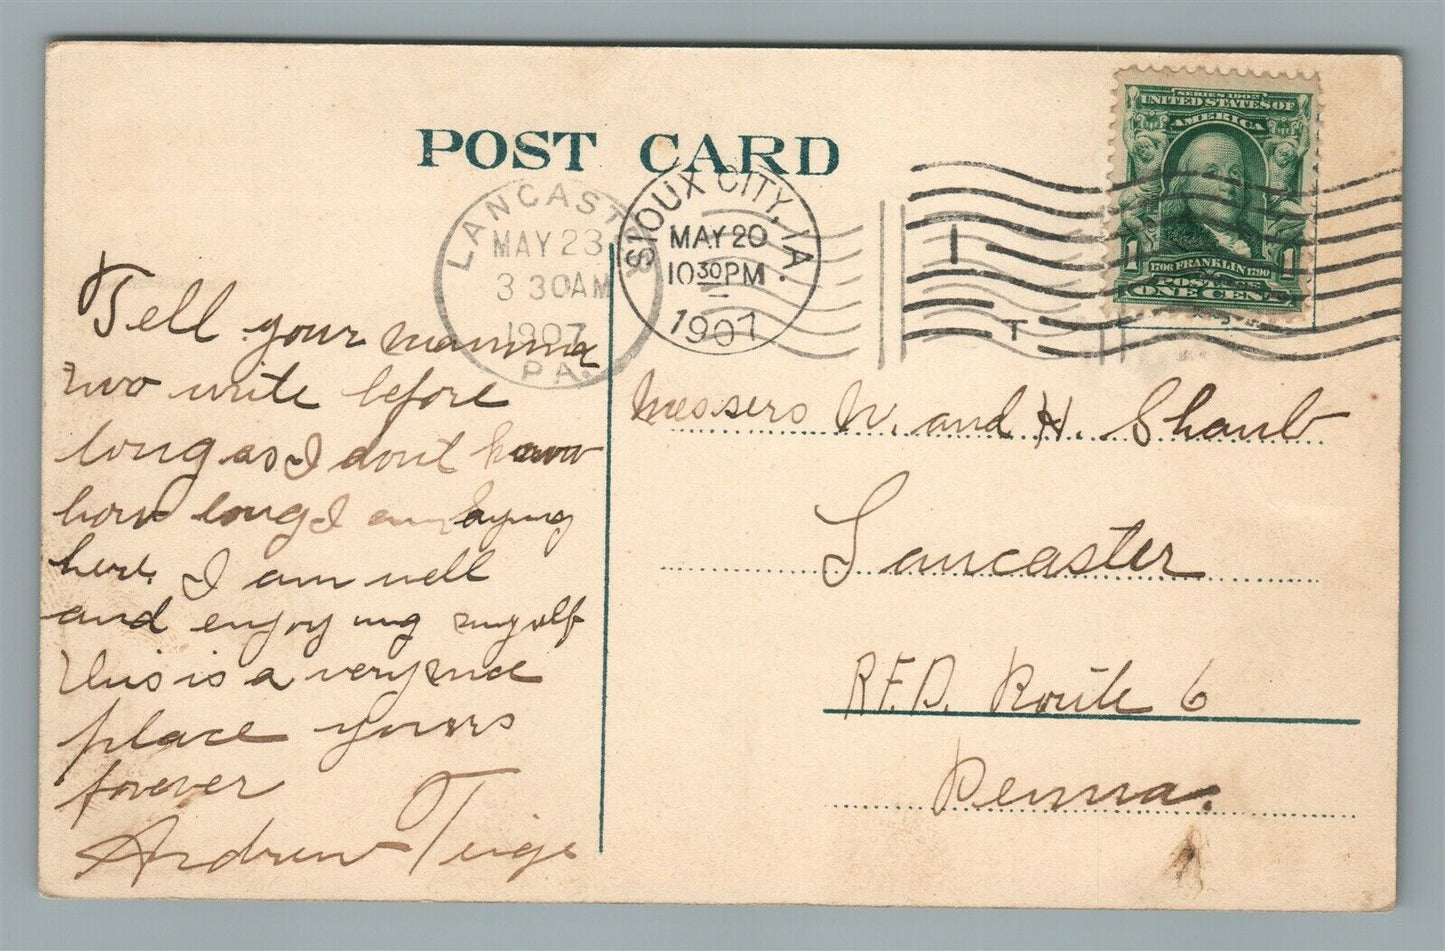 POST CARD
SERIES 1902
UNITED STATES OF
AMERICA
1706 FRANKLIN 1790
1 1
POSTAGE
ONE CENT
LANCASTER
MAY 23
3 30 AM
1907
PA.
SIOUX CITY, IA.
MAY 20
10 30 PM
1907
I
T
Tell your mamma
two write before
long as I dont know
how long I am
here. I am well
and enjoying myself
this is a very
place yours
forever
Andrew
Messers W. and H. Shaub
Lancaster
R.F.D. Route 6
Penna.